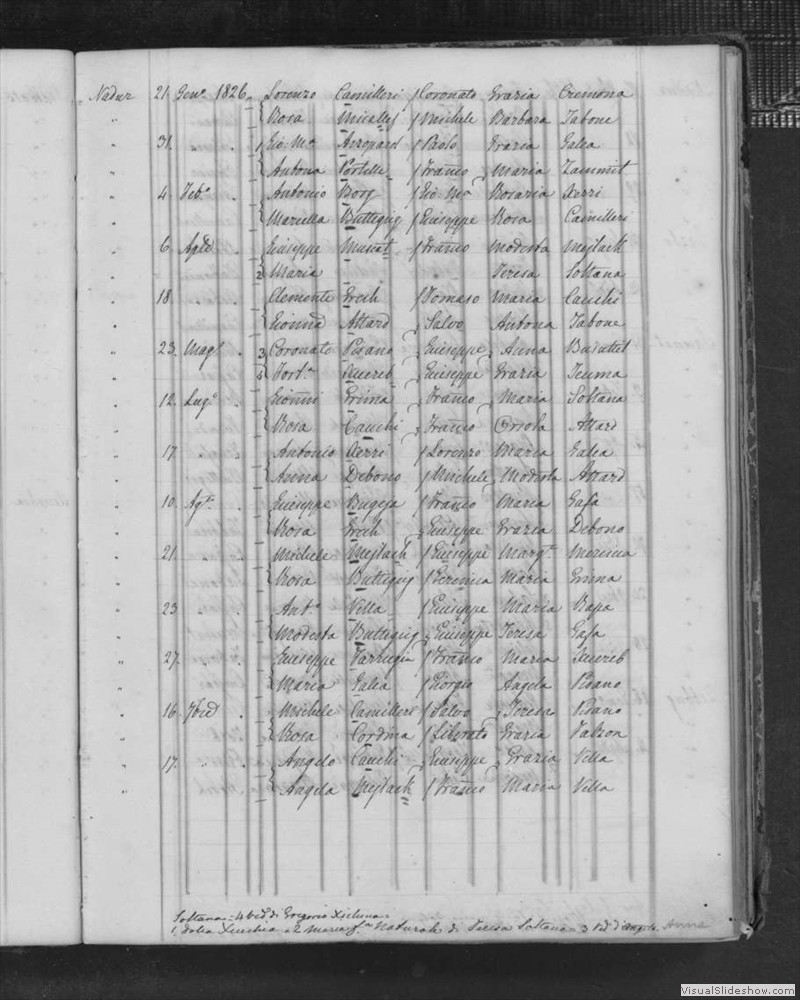 Nadur 21 Genº 1826. Lorenzo Camilleri / Coronato Grazia Cremona
" Rosa Micallef / Michele Barbara Tabone
" 31. " . 1 Gio. Mª / Paolo Grazia Galea
" Antona Portelli / Franco Maria Zammit
" 4. Febº . Antonio Borg / Gio. Mª Rosaria Xerri
" Mariella Buttigieg / Giuseppe Rosa Camilleri
" 6. . Giuseppe / Franco Modesta Mejlach
" 2 Maria Teresa Soltana
" 18. " . Clemente Grech / Tomaso Maria Cauchi
" Attard Salvo Antona Tabone
" 23. Magº . 3 Coronato Pisano Giuseppe Anna Busuttil
" 4 Fortª Xuereb Giuseppe Grazia Teuma
" 12. Lugº . Gionni Grima Franco Maria Soltana
" Rosa Cauchi Franco Orsola Attard
" 17. " . Antonio Xerri / Lorenzo Maria Galea
" Anna Debono / Michele Modesta Attard
" 10. Agº . Giuseppe Bugeja / Franco Maria
" Rosa Grech Giuseppe Grazia Debono
" 21. " . Michele Mejlach / Giuseppe Margª
" Rosa Buttigieg / Maria Grima
" 23 " . Antº Vella / Giuseppe Maria Rapa
" Modesta Buttigieg Giuseppe Teresa
" 27. " . Giuseppe Farrugia / Franco Maria Xuereb
" Maria Galea / Giorgio Angela Pisano
" 16. . Michele Camilleri / Salvo Teresa Pisano
" Rosa Cordina / Liberato Grazia Falzon
" 17. " . Angelo Cauchi Giuseppe Grazia Vella
" Angela Mejlach / Franco Maria Vella
Soltana = 4 ved. di Gregorio Xicluna =
= 2 Maria fª Naturale di Teresa Soltana = 3 Ved. d'Angelo Anna
VisualSlideshow.com